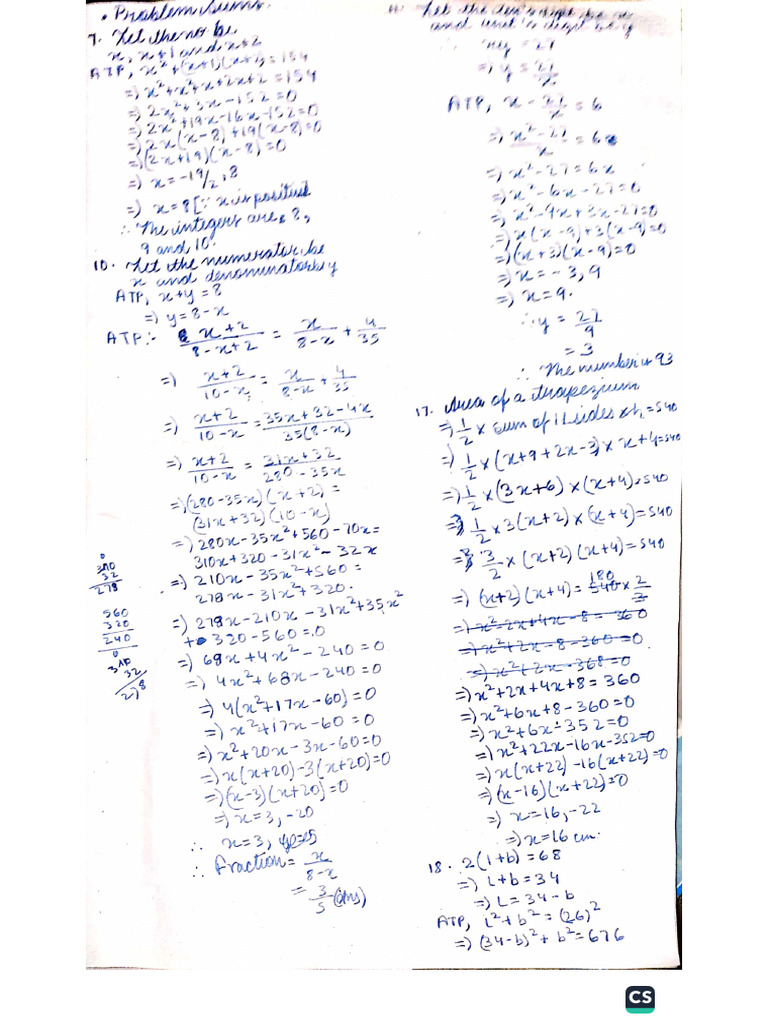 • Problem Sums.
7. Let the no be
x, x+1 and x+2
ATP, x² + (x+1)(x+2) = 154
=) x² + x² + x + 2x + 2 = 154
=) 2x² + 3x - 152 = 0
=) 2x² + 19x - 16x - 152 = 0
=) 2x(x-8) + 19(x-8) = 0
=) (2x+19)(x-8) = 0
=) x = -19/2, 8
=) x = 8 [∵ x is positive
∴ The integers are 8,
9 and 10.
10. Let the numerator be
x and denominator be y
ATP, x+y = 8
=) y = 8-x
ATP:- x+2/8-x+2 = x/8-x + 4/35
=) x+2/10-x = x/8-x + 4/35
=) x+2/10-x = 35x+32-4x/35(8-x)
=) x+2/10-x = 31x+32/280-35x
=) (280-35x)(x+2) =
(31x+32)(10-x)
=) 280x - 35x² + 560 - 70x =
310x + 320 - 31x² - 32x
=) 210x - 35x² + 560 =
278x - 31x² + 320.
=) 278x - 210x - 31x² + 35x²
+ 320 - 560 = 0
=) 68x + 4x² - 240 = 0
=) 4x² + 68x - 240 = 0
=) 4(x² + 17x - 60) = 0
=) x² + 17x - 60 = 0
=) x² + 20x - 3x - 60 = 0
=) x(x+20) - 3(x+20) = 0
=) (x-3)(x+20) = 0
=) x = 3, -20
∴ x = 3, y = 5
∴ Fraction = x/8-x
= 3/5 (ans)
310
32
278
560
320
240
310
32
278
Let the ten's digit be x
and unit's digit be y
∴ xy = 27
=) y = 27/x
ATP, x - 27/x = 6
=) x² - 27/x = 6
=) x² - 27 = 6x
=) x² - 6x - 27 = 0
=) x² - 9x + 3x - 27 = 0
=) x(x-9) + 3(x-9) = 0
=) (x+3)(x-9) = 0
=) x = -3, 9
=) x = 9.
∴ y = 27/9
= 3
∴ The number is 93
17. Area of a trapezium
=) 1/2 × sum of 11 sides × h = 540
=) 1/2 × (x+9+2x-3) × x+4 = 540
=) 1/2 × (3x+6) × (x+4) = 540
=) 1/2 × 3(x+2) × (x+4) = 540
=) 3/2 × (x+2)(x+4) = 540
=) (x+2)(x+4) = 540 180 × 2/3
=) x² - 2x + 4x - 8 = 360
=) x² + 2x - 8 - 360 = 0
=) x² + 2x - 368 = 0
=) x² + 2x + 4x + 8 = 360
=) x² + 6x + 8 - 360 = 0
=) x² + 6x - 352 = 0
=) x² + 22x - 16x - 352 = 0
=) x(x+22) - 16(x+22) = 0
=) (x-16)(x+22) = 0
=) x = 16, -22
=) x = 16 cm.
18. 2(l+b) = 68
=) l+b = 34
=) L = 34-b
ATP, L² + b² = (26)²
=) (34-b)² + b² = 676
CS